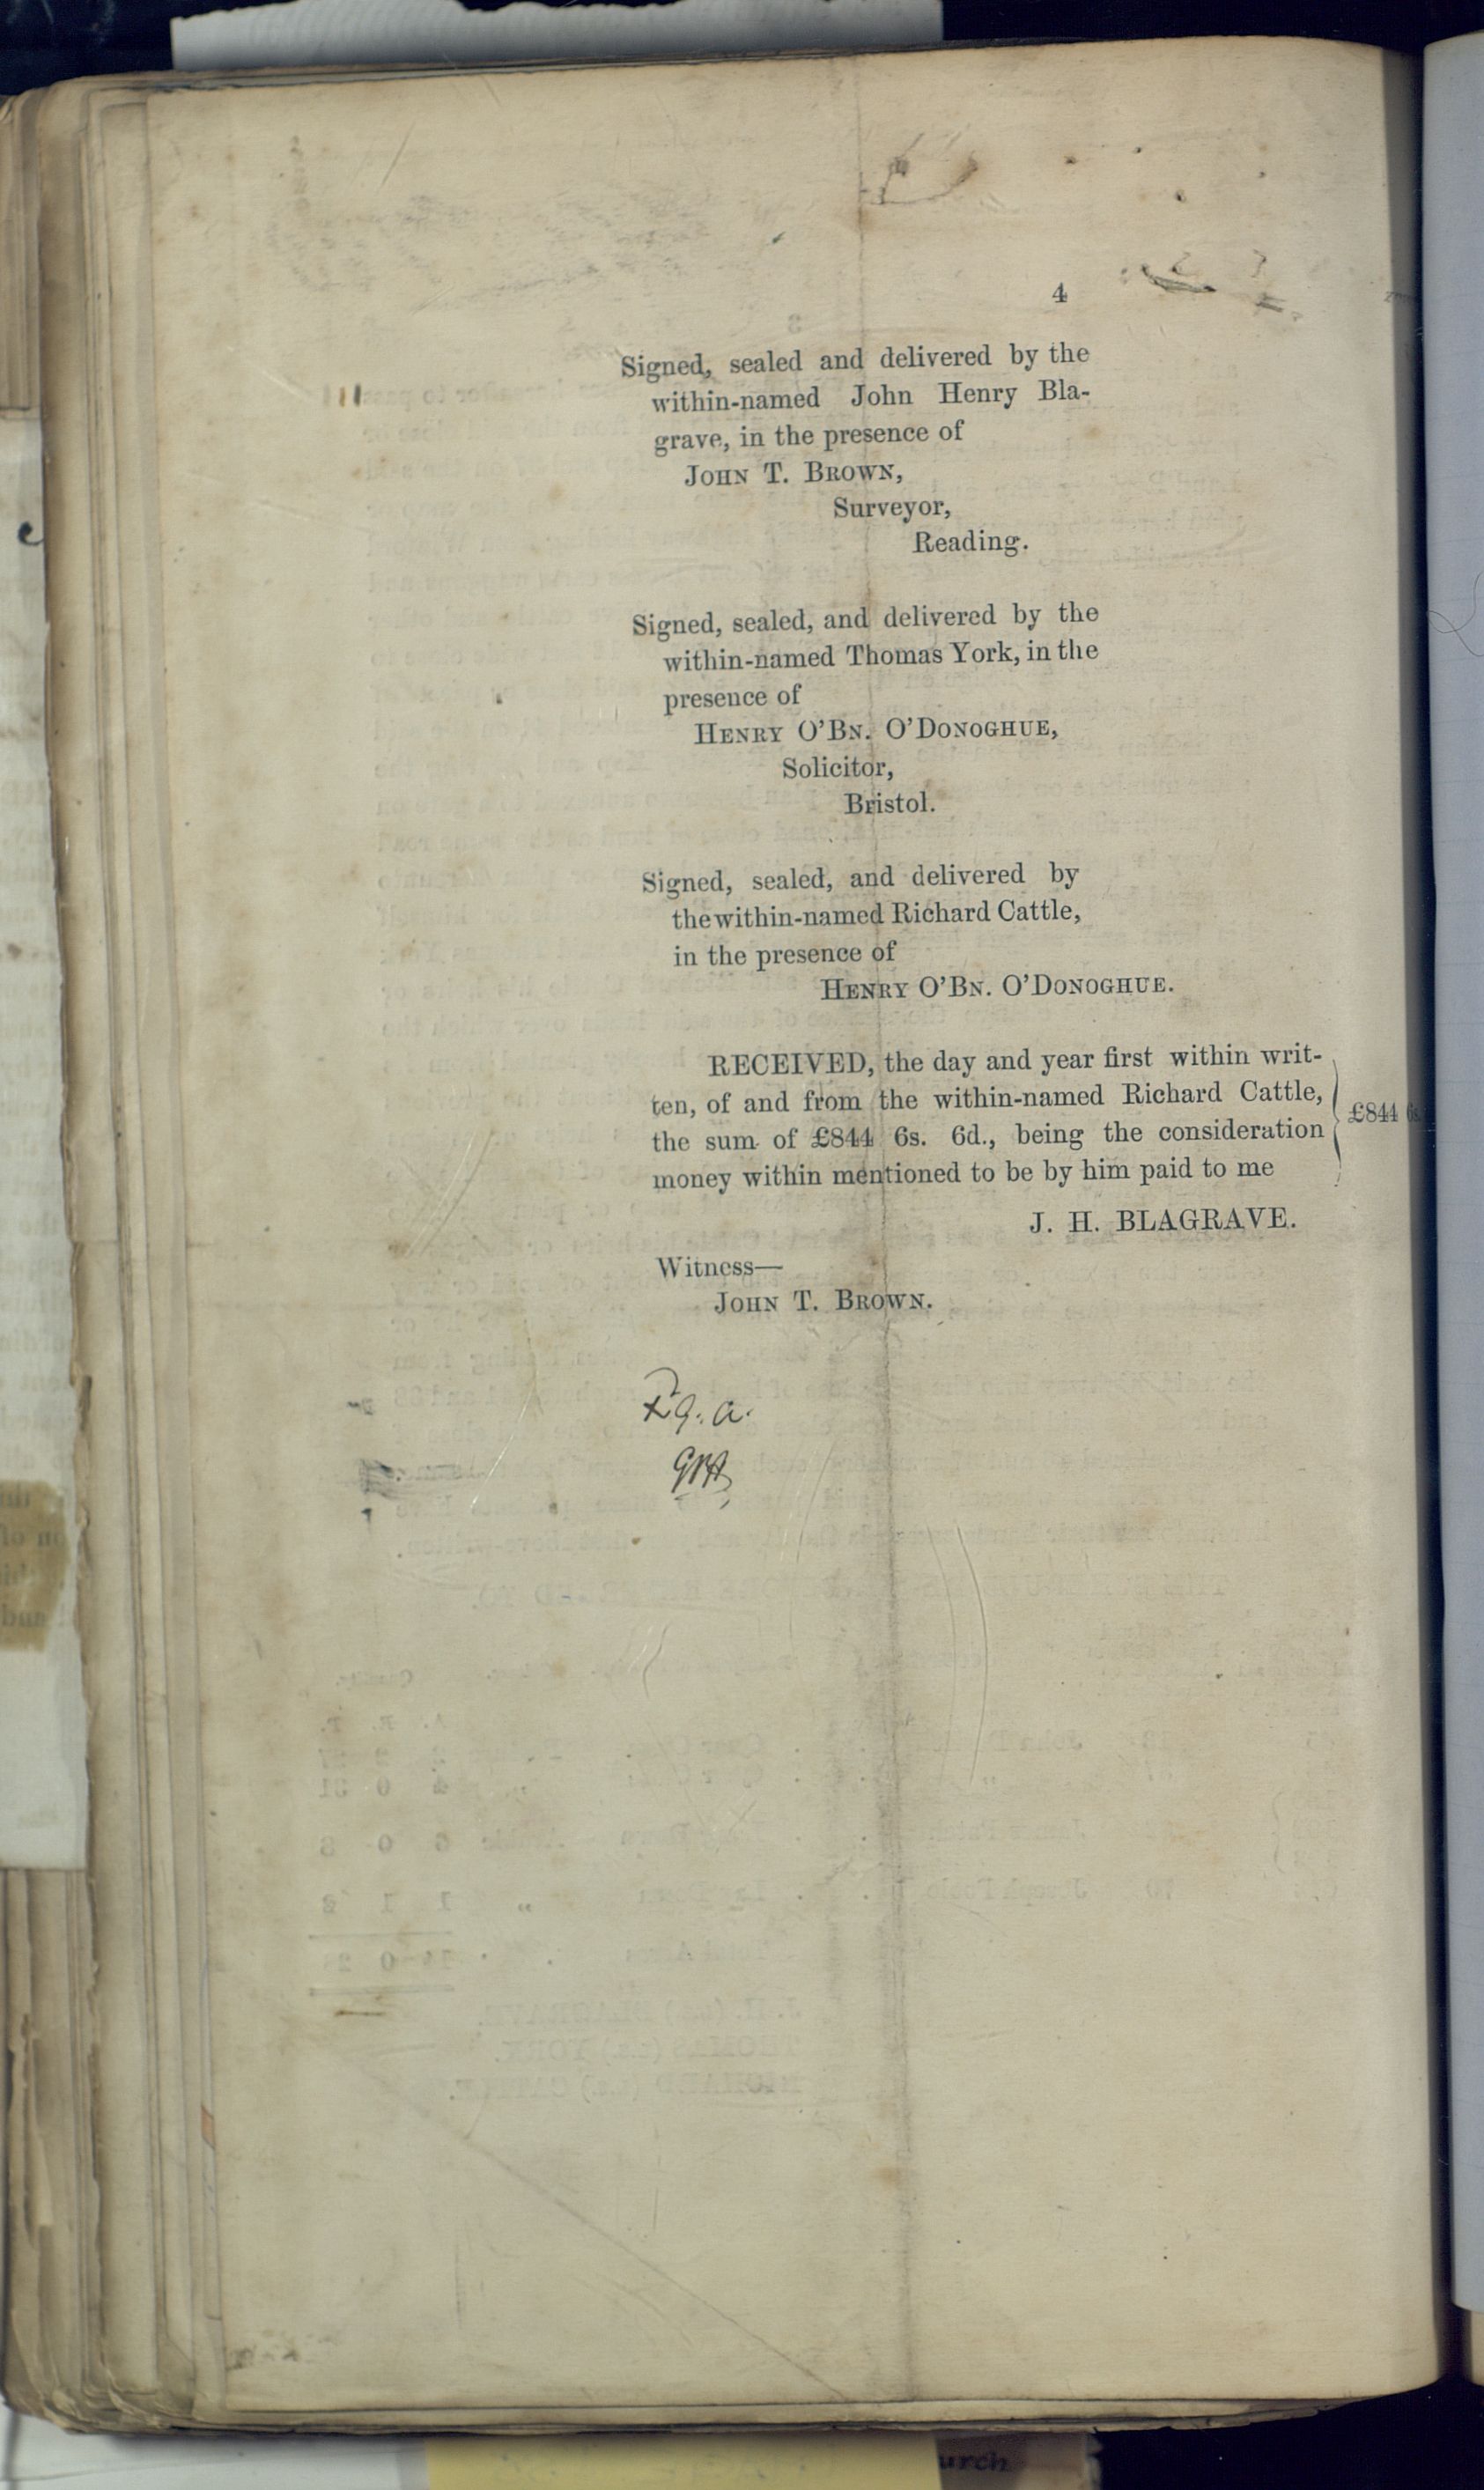 4
Signed, sealed and delivered by the
within-named John Henry Bla-
grave, in the presence of
JOHN T. BROWN,
Surveyor,
Reading.
Signed, sealed, and delivered by the
within-named Thomas York, in the
presence of
HENRY O'BN. O'DONOGHUE,
Solicitor,
Bristol.
Signed, sealed, and delivered by
the within-named Richard Cattle,
in the presence of
HENRY O'BN. O'DONOGHUE.
RECEIVED, the day and year first within writ-
ten, of and from the within-named Richard Cattle,
the sum of £844 6s. 6d., being the consideration
money within mentioned to be by him paid to me
£844 6s.
J. H. BLAGRAVE.
Witness—
JOHN T. BROWN.
urch